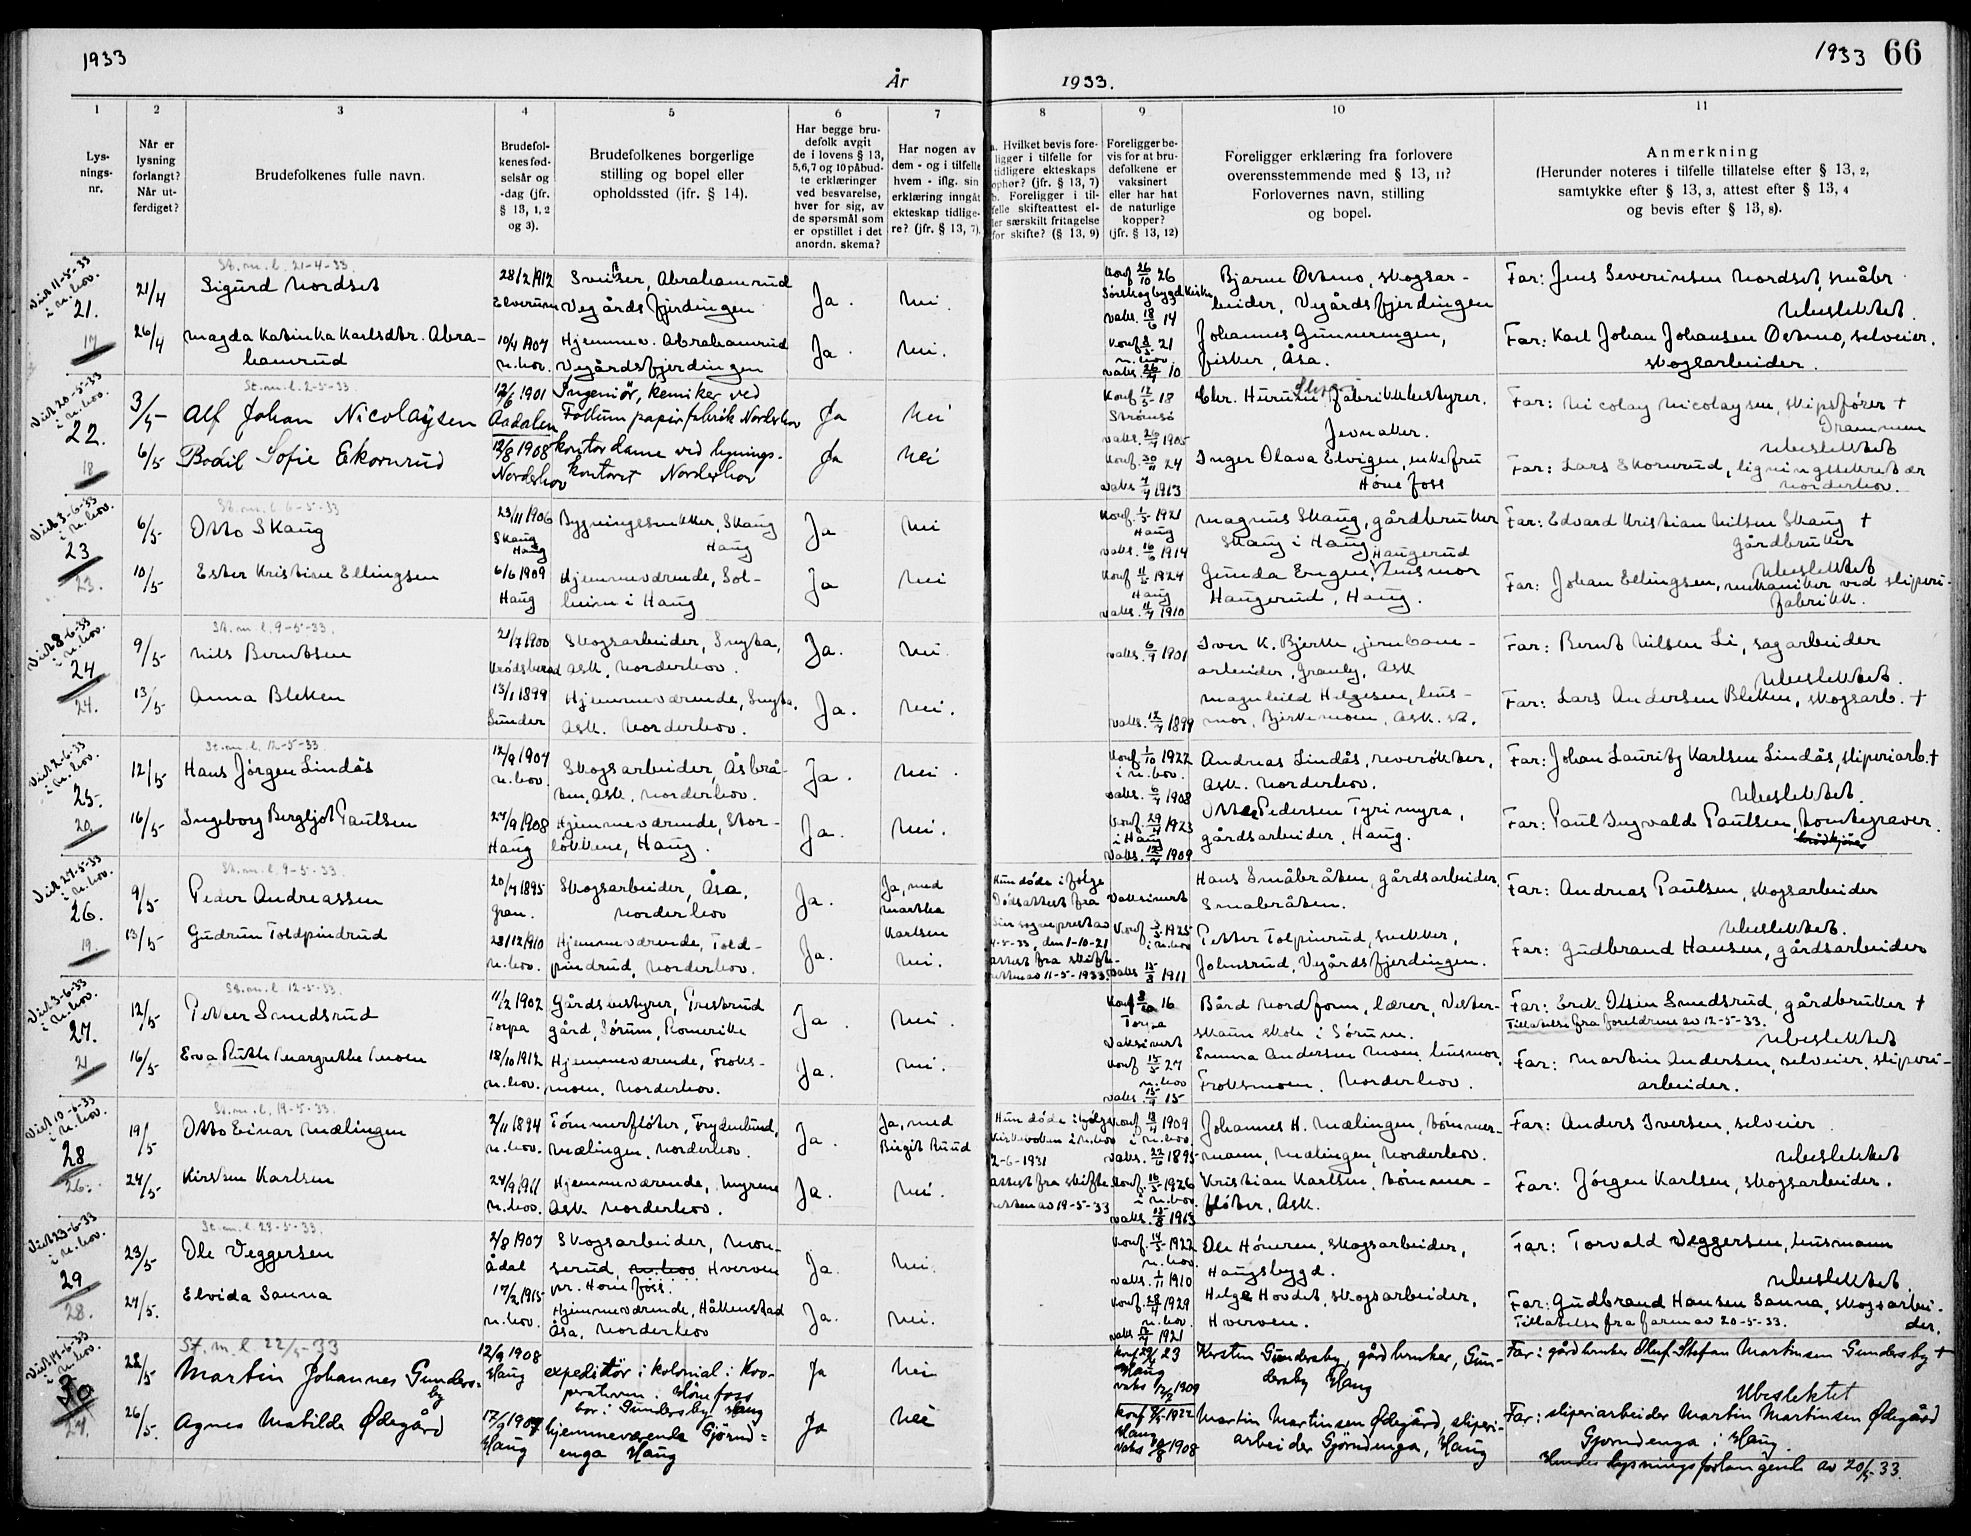 1933
År
1933.
1933 66
1
Lys-
nings-
nr.
2
Når er
lysning
forlangt?
Når ut-
ferdiget?
3
Brudefolkenes fulle navn.
4
Brudefol-
kenes fød-
selsår og
-dag (jfr.
§ 13, 1, 2
og 3).
5
Brudefolkenes borgerlige
stilling og bopel eller
opholdssted (jfr. § 14).
6
Har begge bru-
defolk avgit
de i lovens § 13,
5,6,7 og 10 påbud-
te erklæringer
ved besvarelse,
hver for sig, av
de spørsmål som
er opstillet i det
anordn. skema?
7
Har nogen av
dem - og i tilfelle
hvem - iflg. sin
erklæring inngåt
ekteskap tidlige-
re? (jfr. § 13, 7).
8
a. Hvilket bevis fore-
ligger i tilfelle for
tidligere ekteskaps
ophør? (jfr. § 13, 7)
b. Foreligger i til-
felle skifteattest el-
ler særskilt fritagelse
for skifte? (§ 13, 9)
9
Foreligger be-
vis for at bru-
defolkene er
vaksinert
eller har hat
de naturlige
kopper?
(jfr. § 13, 12)
10
Foreligger erklæring fra forlovere
overensstemmende med § 13, 11?
Forlovernes navn, stilling
og bopel.
11
Anmerkning
(Herunder noteres i tilfelle tillatelse efter § 13, 2,
samtykke efter § 13, 3, attest efter § 13, 4
og bevis efter § 13, 8).
Viet 11-5-33
i N.hov.
21.
17
St. m. l. 21-4-33.
21/4 Sigurd Nordset 28/2 1912 Elverum
Sveiser, Abrahamrud
Vegårdsfjerdingen
Ja. Nei.
Konf 26/10 26
Sørskogbygd Kirke
Vaks. 18/6 14
Bjarne Østmo, skogsar-
beider, Vegårdsfjerdingen
Far: Jens Severinsen Nordset, småbr.
Ubeslektet.
26/4 Magda Katinka Karlsdtr. Abra-
hamrud
10/4 1907 N.hov.
Hjemmev. Abrahamrud
Vegårdsfjerdingen
Ja. Nei.
21
n. hov.
10
Johannes Gunnerengen,
fisker, Åsa.
Far: Karl Johan Johansen Østmo, selveier,
skogsarbeider.
Viet 20-5-33
i N.hov.
22.
18
St. m. l. 2-5-33.
3/5 Alf Johan Nicolaysen 12/6 1901 Aadalen
Ingeniør, kemiker ved
Follum papirfabrik Norderhov
Ja Nei
Konf 12/5 18
Strømsø
vaks. 26/4 1905
Chr. Hurum, fabrikkbestyrer.
Jevnaker.
Far: Nicolay Nicolaysen, skipsfører †
Drammen
Ubeslektet
6/5 Bodil Sofie Ekornrud 12/8 1908 Norderhov
kontordame ved lignings-
kontoret Norderhov
Ja Nei
Konf. 30/11 24
Vaks 7/7 1913
Inger Olava Elvigen, enkefru
Hønefoss
Far: Lars Ekornrud, ligningssekretær
Norderhov.
Viet 3-6-33
i N.hov.
23
23.
St. m. l. 6-5-33
6/5 Otto Skaug 23/11 1906
Skaug
Haug
Bygningssnekker, Skaug
Haug
Ja Nei
Konf. 1/5 1921
Haug
vaks. 16/6 1914
Magnus Skaug, gårdbruker
Skaug i Haug
Far: Edvard Kristian Nilsen Skaug †
Gårdbruker
Ubeslektet
10/5 Ester Kristine Ellingsen 6/6 1909 Haug
Hjemmeværende, Sol-
heim i Haug
Ja Nei
Konf 11/5 1924
Haug
vaks. 11/7 1910
Haugerud
Gunda Engen, husmor
Haugerud, Haug.
Far: Johan Ellingsen, mekaniker ved sliperi-
fabrikk.
Viet 8-6-33
i N.hov.
24
24.
St. m. l. 9-5-33.
9/5 Nils Berntsen 21/7 1900 Krødsherad
Skogsarbeider, Smytta,
Ask, Norderhov.
Ja. Nei
vaks. 6/7 1901
Iver K. Bjerke, jernbane-
arbeider, Granly, Ask
Far: Bernt Nilsen Li, sagarbeider
Ubeslektet.
13/5 Anna Bleken 13/1 1899 Lunder
Hjemmeværende, Smytta,
Ask. Norderhov.
Ja. Nei.
Vaks. 12/7 1899
Magnhild Helgesen, hus-
mor, Bjerkemoen, Ask. st.
Far: Lars Andersen Bleken, skogsarb. †
Viet 2-6-33
i N.hov.
25.
20.
St. m. l. 12-5-33.
12/5 Hans Jørgen Lindås 12/9 1907 N.hov
Skogsarbeider, Åsbrå-
ten, Ask. Norderhov.
Ja. Nei.
Konf 1/10 1922
i N. hov.
vaks. 6/7 1908
Andreas Lindås, reverøkter,
Ask. Norderhov.
Far: Johan Lauritz Karlsen Lindås, sliperiarb. †
Ubeslektet.
16/5 Ingeborg Bergljot Paulsen 27/9 1908 Haug
Hjemmeværende, Stor-
løkkene, Haug.
Ja. Nei.
Konf. 29/4 1923
i Haug
Vaks. 12/7 1909
Pedersen Tyrimyra,
gårdsarbeider, Haug.
Far: Paul Ingvald Paulsen, tomtegraver.
Viet 27-5-33
i N.hov.
26.
19.
St. m. l. 9-5-33.
9/5 Peder Andreassen 20/7 1895 Gran.
Skogsarbeider, Åsa,
Norderhov
Ja.
Ja, med
Martha
Karlsen
Hun døde i følge
Dødsattest fra
sogneprest av
4-5-33, den 1-10-21
attest fra skifte-
retten av 11-5-1933
Vaksinert
Hans Småbråten, gårdsarbeider,
Småbråten.
Far: Andreas Paulsen, skogsarbeider
Ubeslektet.
13/5 Gudrun Toldpindrud 28/12 1910 N.hov.
Hjemmeværende, Told-
pindrud, Norderhov.
Ja. Nei.
Konf 3/5 1925
i N.hov
Vaks 15/8 1911
Petter Tolpinrud, snekker,
Johnsrud, Vegårdsfjerdingen.
Far: Gudbrand Hansen, gårdsarbeider
Viet 3-6-33
i N.hov.
27.
21
St. m. l. 12-5-33.
12/5 Petter Smedsrud 11/2 1902 Torpa
Gårdsbestyrer, Prestrud
gård, Sørum, Romerike
Ja. Nei.
Konf 8/10 16
Torpa
Vaksinert
Bård Nordform, lærer, Vester-
skaun skole i Sørum.
Far: Erik Olsen Smedsrud, gårdbruker †
Tillatelse fra foreldrene av 12-5-33.
Ubeslektet
16/5 Eva Ruth Margrethe Moen 18/10 1912 N.hov.
Hjemmeværende, Froks-
moen, Norderhov.
Ja. Nei.
Konf 15/5 27
N.hov
vaks. 15/9 15
Emma Andersen Moen, husmor,
Froksmoen. Norderhov.
Far: Martin Andersen, selveier, sliperi-
arbeider.
Viet 10-6-33
i N.hov.
28
26.
St. m. l. 19-5-33.
19/5 Otto Einar Mælingen 2/11 1894 N.hov.
Tømmerfløter, Frydenlund,
Mælingen, Norderhov.
Ja.
Ja, med
Birgit Ruud
Hun døde i følge
kirkeboken i N.hov
2-6-1931
attest fra skifte-
retten av 19-5-33
Konf 18/4 1909
i N.hov.
Vaks. 22/6 1895
Johannes H. Mælingen, tømmer-
mann, Mælingen, Norderhov.
Far: Anders Iversen, selveier.
Ubeslektet
24/5 Kirsten Karlsen 24/9 1911 N.hov.
Hjemmeværende, Myrene
Ask Norderhov.
Ja. Nei.
Konf. 16/5 1926
i N.hov
vaks. 15/8 1913
Kristian Karlsen, tømmer-
fløter, Ask.
Far: Jørgen Karlsen, skogsarbeider.
Viet 23-6-33
i N.hov.
29
28.
St. m. l. 23-5-33.
23/5 Ole Veggersen 2/8 1907 Ådal
Skogsarbeider, Mon-
serud, N.hov Hverven
pr. Hønefoss.
Ja. Nei.
Konf. 14/5 1922
N.hov.
vaks. 1/11 1910
Ole Høneren, skogsarbeider,
Haugsbygd.
Far: Torvald Veggersen, husmann
Ubeslektet.
27/5. Elvida Sanna 17/2 1915 N.hov.
Hjemmeværende, Håkenstad
Åsa, Norderhov
Ja. Nei.
Konf. 28/4 1929
N.hov.
1921
Helge Hovdet, skogsarbeider,
Hverven.
Far: Gudbrand Hansen Sanna, skogsarbei-
der.
Tillatelse fra faren av 20-5-33.
Viet 14-6-33
i N.hov.
30
27.
St. m. l. 22/5-33
22/5 Martin Johannes Gunders-
by
12/9 1908 Haug
expeditør i kolonial i Koo-
perativen i Hønefoss
bor i Gundersby Haug
Ja Nei
23
Haug
1909
Kirsten Gundersby, gårdbruker, Gun-
dersby Haug
Far: gårdbruker Oluf Stefan Martinsen Gundersby †
Ubeslektet
26/5. Agnes Mabilde Ødegård 17/9 1907 Haug
hjemmeværende Gjørud-
enga Haug
Ja Nei
1922
Haug
1908
Martin Martinsen Ødegård, sliperi-
arbeider Gjørudenga, Haug
Far: sliperiarbeider Martin Martinsen Ødegård
Gjørudenga i Haug.
Hendes lysningsforlangende av 20/5-33.